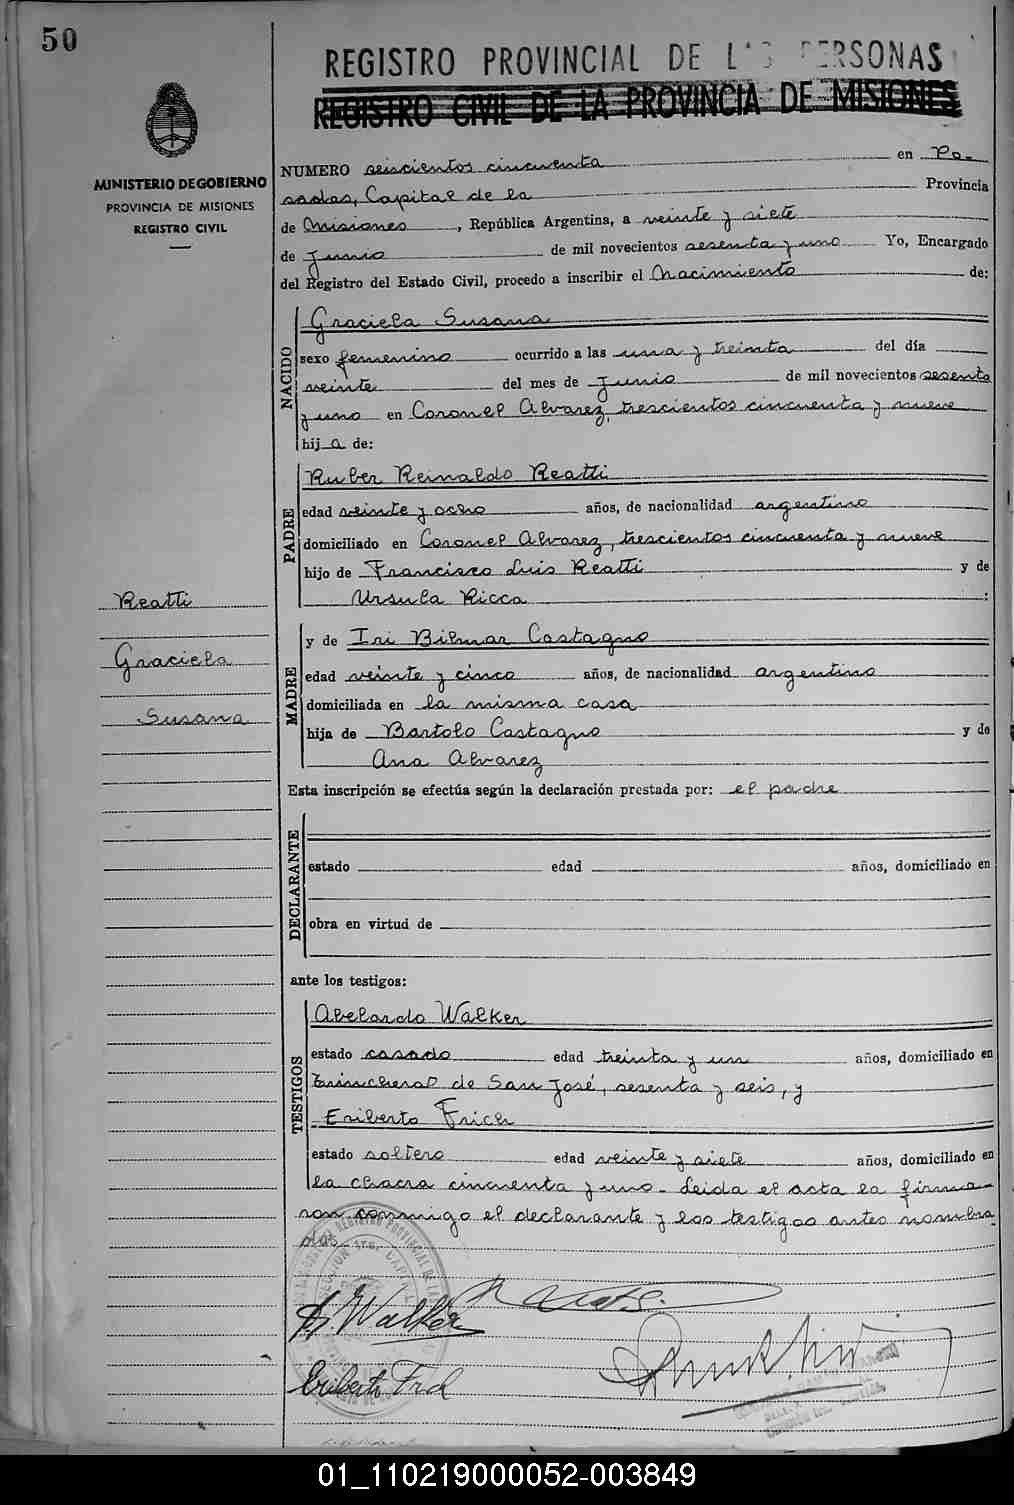 50
REGISTRO PROVINCIAL DE LAS PERSONAS
REGISTRO CIVIL DE LA PROVINCIA DE MISIONES
MINISTERIO DE GOBIERNO
PROVINCIA DE MISIONES
REGISTRO CIVIL
NUMERO seiscientos cincuenta en Po-
sadas, Capital de la Provincia
de Misiones, República Argentina, a veinte y siete
de Junio de mil novecientos sesenta y uno Yo, Encargado
del Registro del Estado Civil, procedo a inscribir el Nacimiento de:
NACIDO
Graciela Susana
sexo femenino ocurrido a las una y treinta del día
veinte del mes de Junio de mil novecientos sesenta
y uno en Coronel Alvarez, trescientos cincuenta y nueve
hija de:
PADRE
Ruber Reinaldo Reatti
edad veinte y ocho años, de nacionalidad argentino
domiciliado en Coronel Alvarez, trescientos cincuenta y nueve
hijo de Francisco Luis Reatti y de
Ursula Ricca :
Reatti
Graciela
Susana
MADRE
y de Iri Bilmar Castagno
edad veinte y cinco años, de nacionalidad argentino
domiciliada en la misma casa
hija de Bartolo Castagno y de
Ana Alvarez
Esta inscripción se efectúa según la declaración prestada por: el padre
DECLARANTE
estado edad años, domiciliado en
obra en virtud de
ante los testigos:
TESTIGOS
Abelardo Walker
estado casado edad treinta y un años, domiciliado en
Trincheras de San José, sesenta y seis, y
Eriberto Frich
estado soltero edad veinte y siete años, domiciliado en
la chacra cincuenta y uno - Leida el acta la firma-
ron conmigo el declarante y los testigos antes nombra
dos
A. Walker
Eriberto Frch
01_110219000052-003849